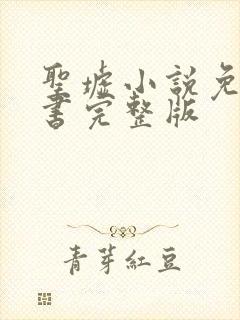 聖墟小說免
書完整版
青芽紅豆